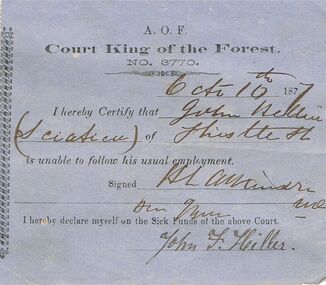 A. O. F.
Court King of the Forest.
NO. 3770.
Octo 10th 187
I hereby Certify that John Hiller
(Sciatica) of Thistle St
is unable to follow his usual employment.
Signed
I hereby declare myself on the Sick Funds of the above Court.
John F. Hiller.